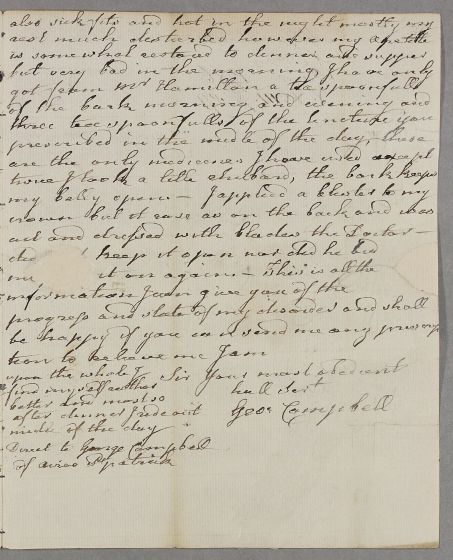 also sick fits and hot in the night mostly my
rest much disturbed however my apetite
is somewhat restored to dinner and supper
but very bad in the morning I have only
got from Mr Hamilton a tea spoonfull
of the bark morning and evening and
three tea spoonfulls of the tincture you
prescribed in the midle of the day, these
are the only medicenes I have used except
twice I took a litle rhubarb, the bark keeps
my belly open – I applied a blister to my
crown but it rase as on the back and was
cut and dressed with blades the Doctor –
did keep it open nor did he bid
me it on again – This is all the
information I can give you of the
progress and state of my disorder and shall
be happy if you can send me any prescrip
tion to releave me I am
Sir Your most obedient
hull Servt
Geor Campbell
upon the whole I
find myself rather
better and most so
after dinner I ride out
midle of the day
Direct to George Campbell
of Patrick